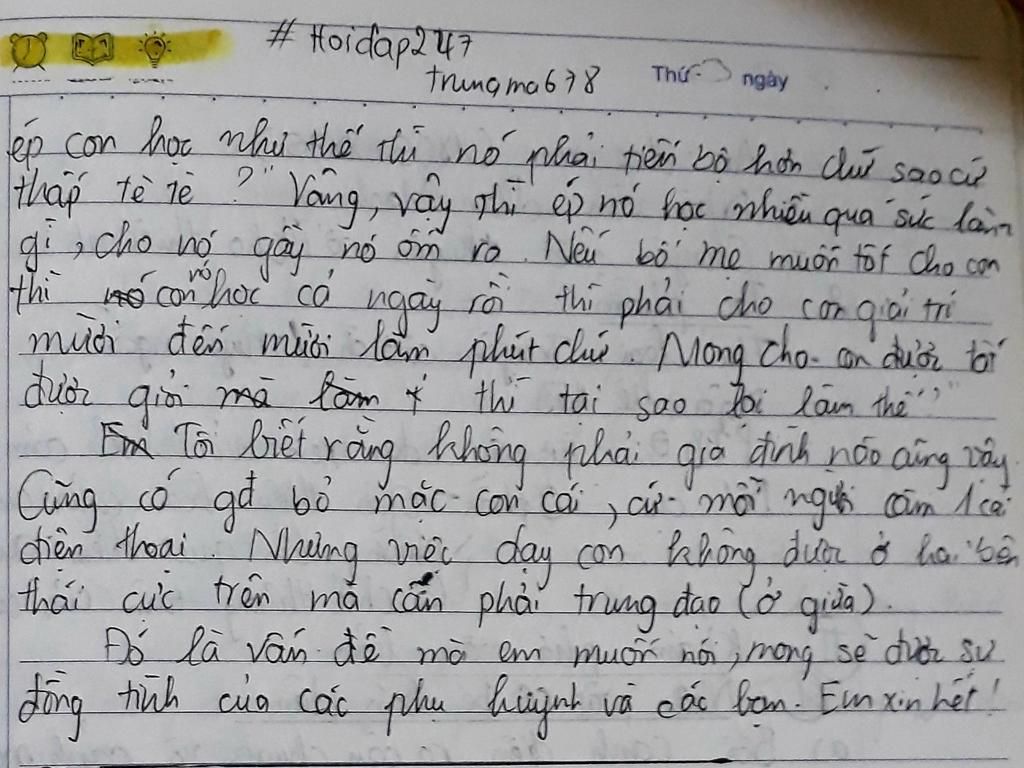 # Hoidap247
trungma678 Thứ ngày
ép con học như thế thì nó phải tiến bộ hơn chứ sao cứ
thấp tè tè ?" Vâng, vậy thì ép nó học nhiều quá sức làm
gì, cho nó gầy nó ốm ra. Nếu bố mẹ muốn tốt cho con
thì con nó học cả ngày rồi thì phải cho con giải trí
mười đến mười lăm phút chứ. Mong cho con được tốt
được giỏi thì tại sao lại làm thế"
Em Tôi biết rằng không phải gia đình nào cũng vậy.
Cũng có gđ bỏ mặc con cái, cứ mỗi người cầm 1 cái
điện thoại. Nhưng việc dạy con không được ở hai bên
thái cực trên mà cần phải trung đạo (ở giữa).
Đó là vấn đề mà em muốn nói, mong sẽ được sự
đồng tình của các phụ huynh và các bạn. Em xin hết!